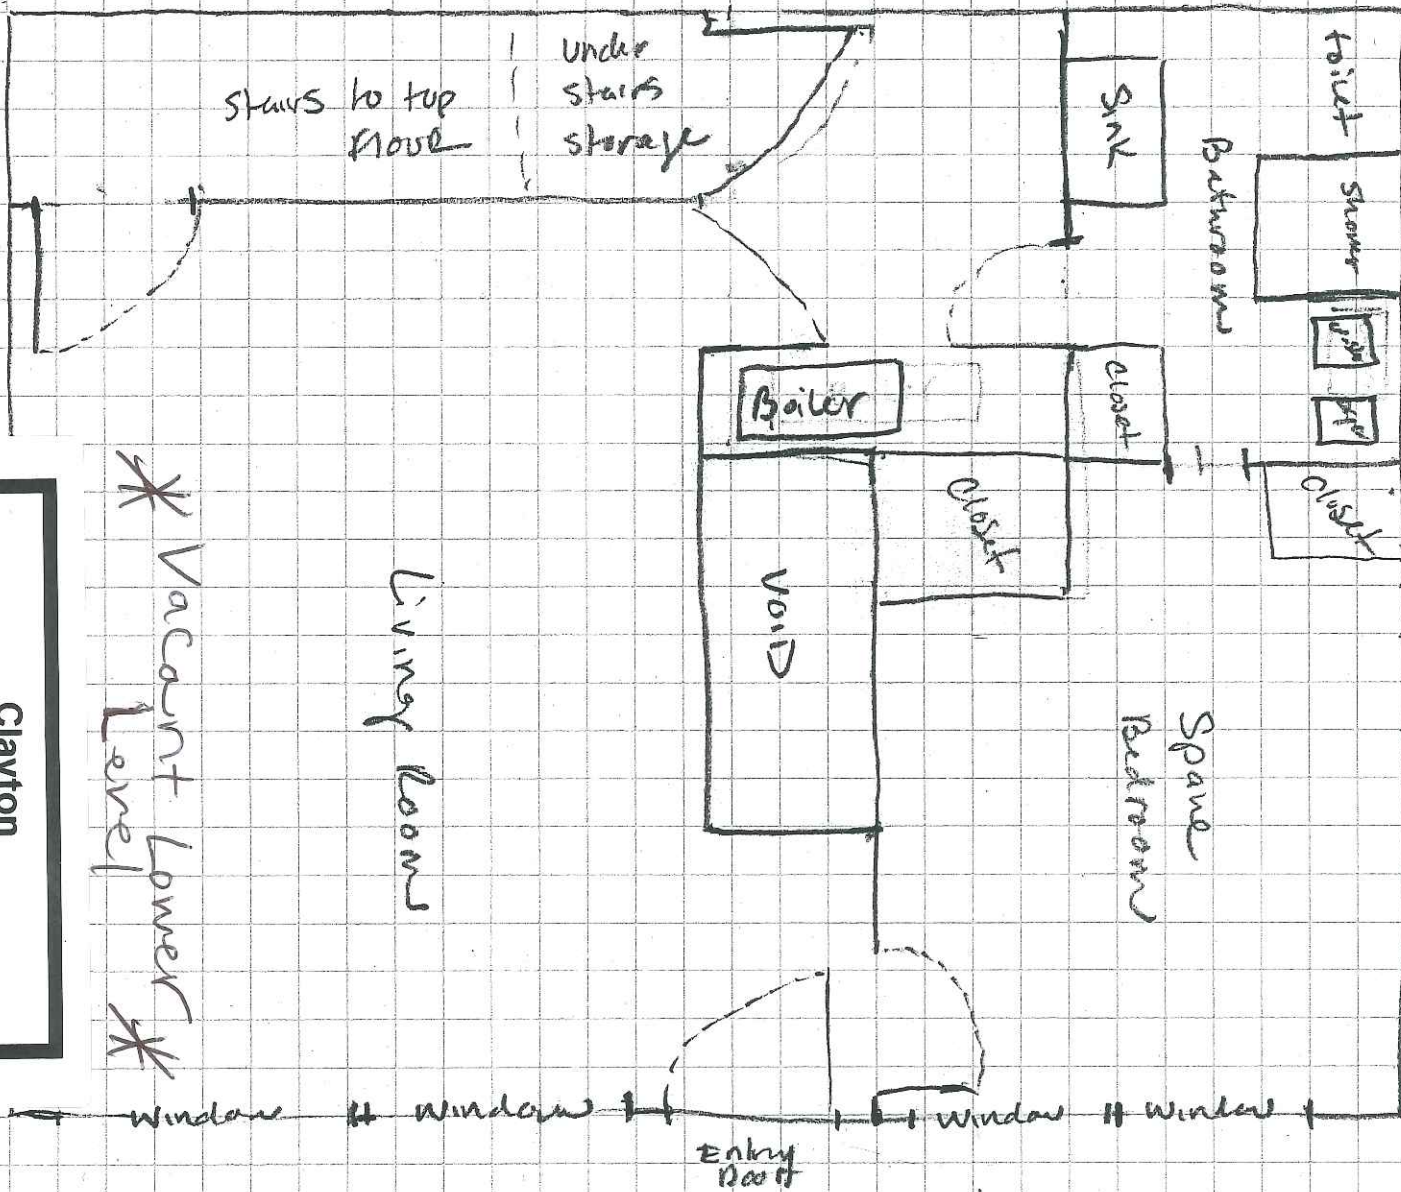 stairs to top
floor
under
stairs
storage
Sink
Bathroom
toilet
Shower
Boiler
closet
closet
closet
VOID
Living Room
Spare
Bedroom
* Vacant Lower
Level *
Clayton
Window
Window
Window
Window
Entry
Door